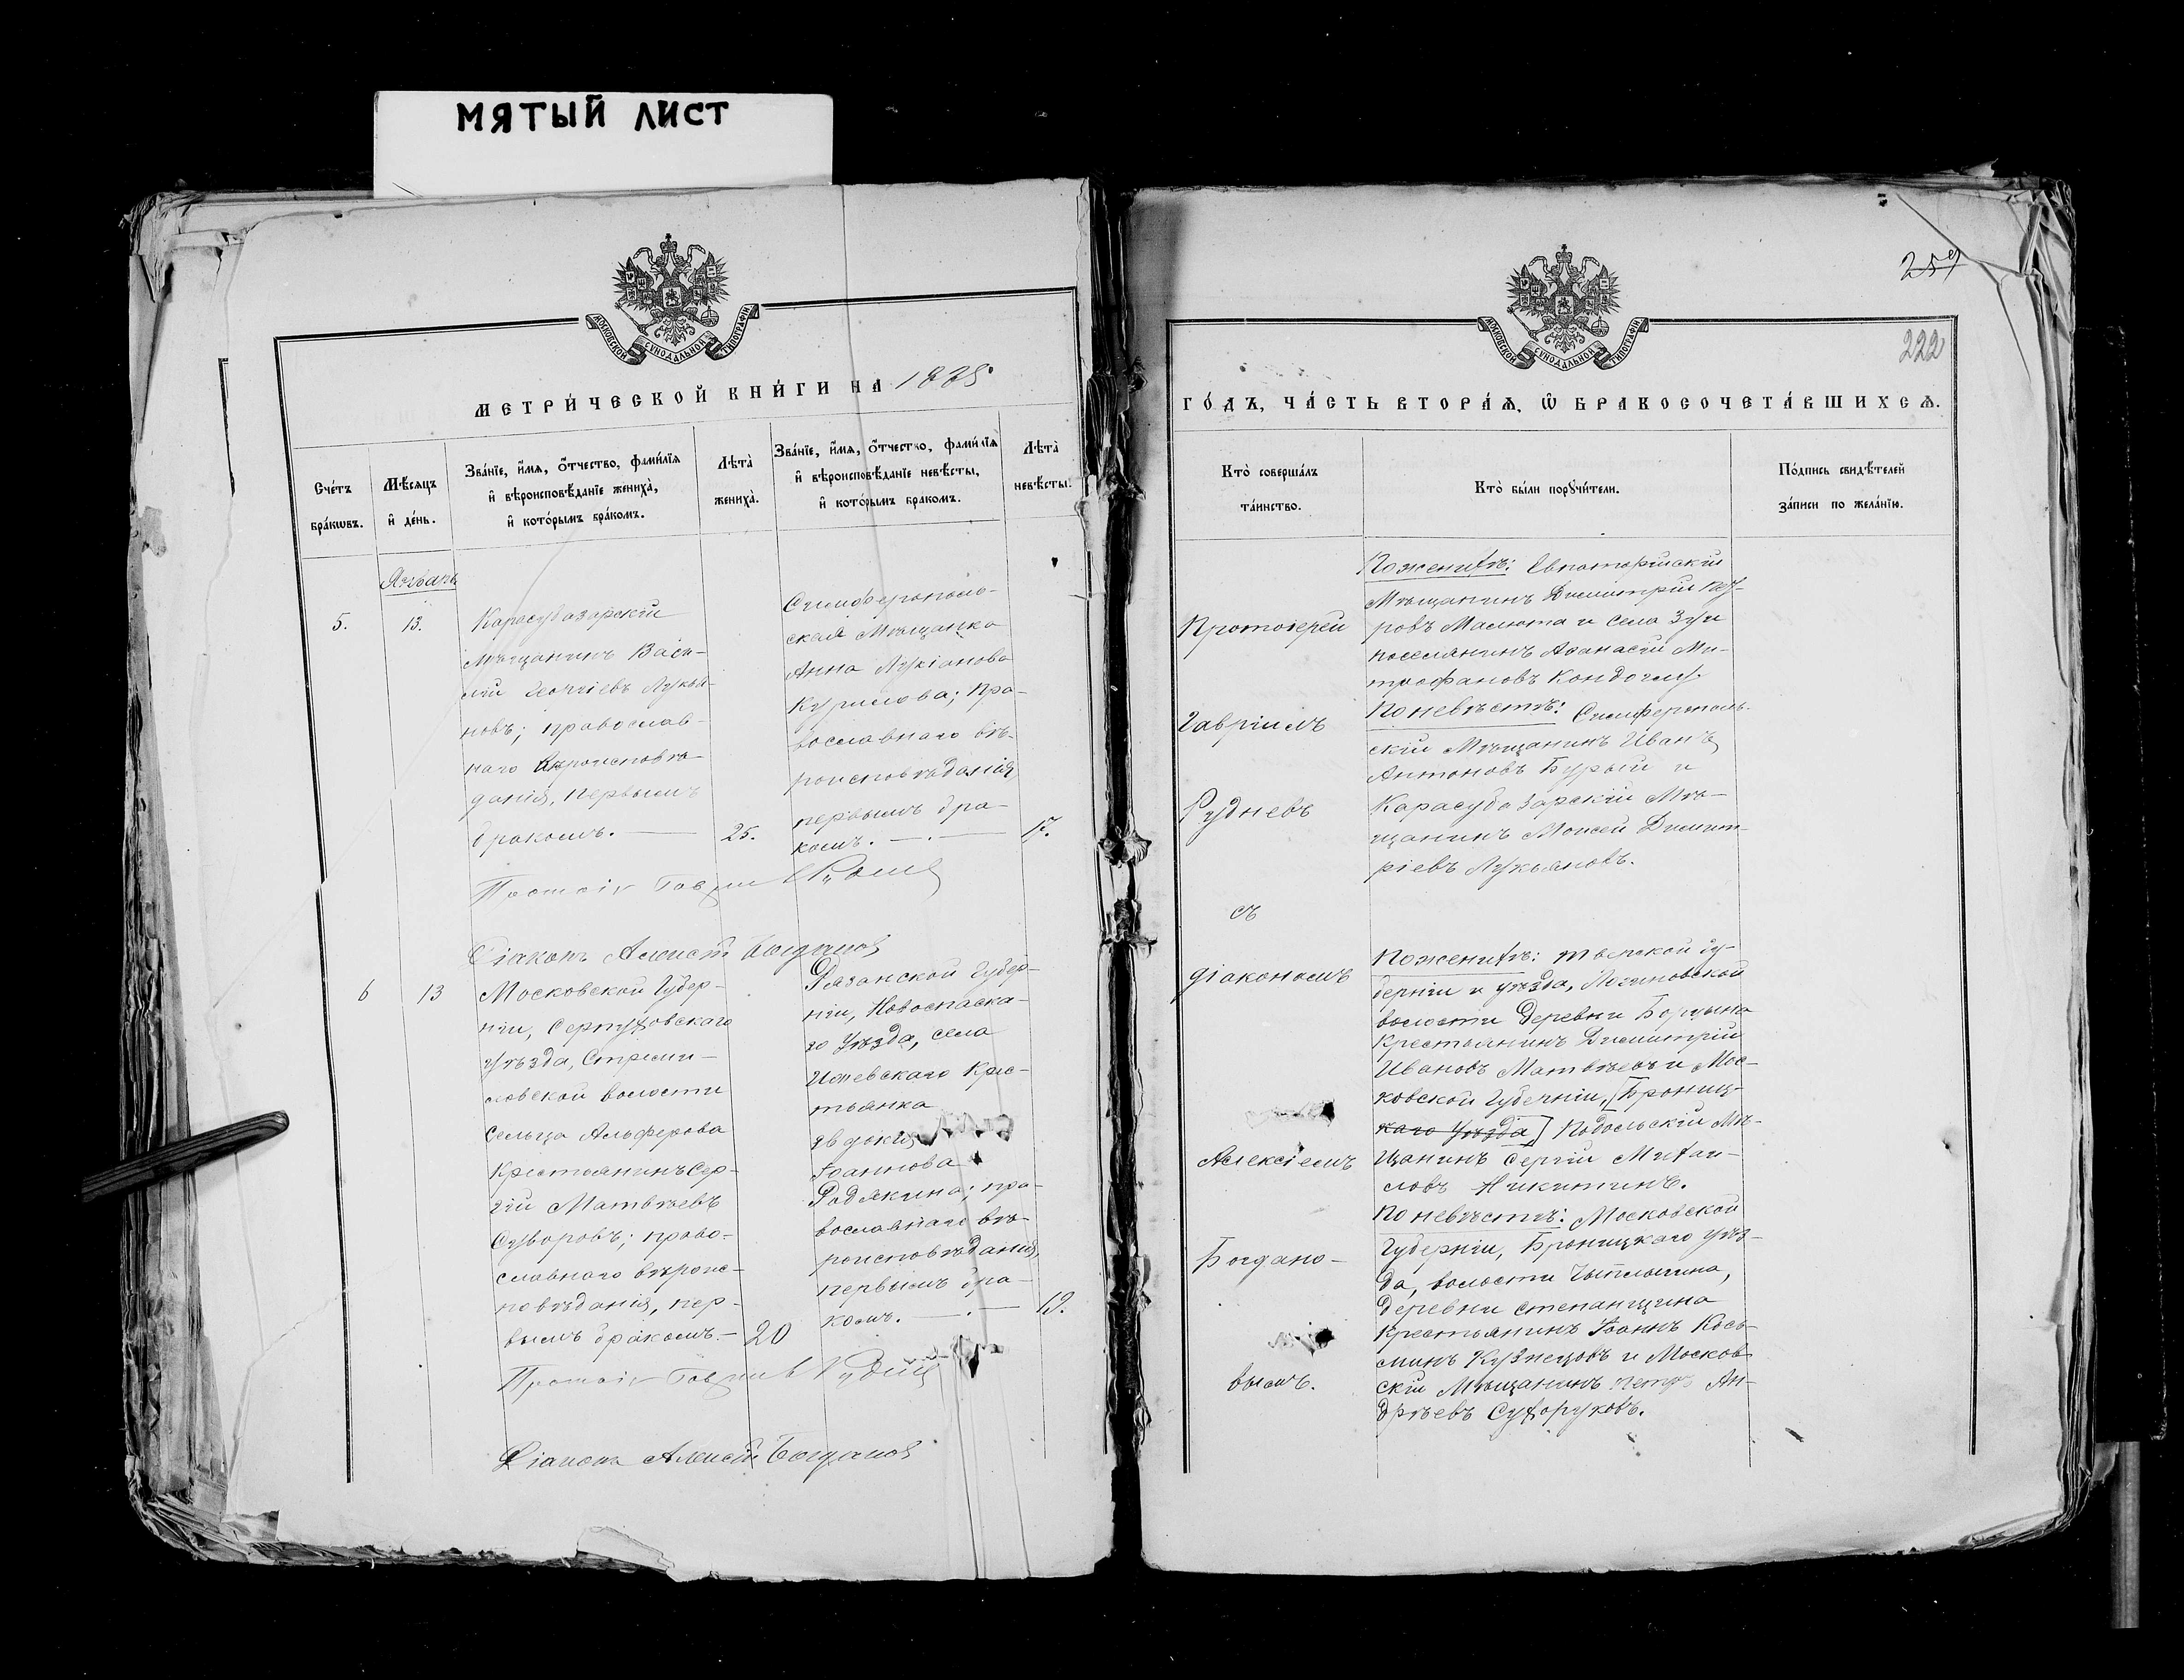 МЯТЫЙ ЛИСТ
МОСКОВСКОЙ СѴНОДАЛЬНОЙ ТИПОГРАФІИ.
МЕТРИ́ЧЕСКОЙ КНИ́ГИ НА
Сче́тъ
бра́кѡвъ.
Мѣ́сяцъ
и҆ де́нь.
Зва́нїе, и҆́мѧ, ѻ҆́тчество, фами́лїѧ
и҆ вѣроисповѣ́данїе жениха̀,
и҆ кото́рымъ бра́комъ.
Лѣта̀
жениха̀.
Зва́нїе, и҆́мѧ, ѻ҆́тчество, фами́лїѧ
и҆ вѣроисповѣ́данїе невѣ́сты,
и҆ кото́рымъ бракомъ.
Лѣта̀
невѣ́сты.
Январь
5.
13.
Карасубазарскій
Мѣщанинъ Васи-
лій Георгіевъ Лукья-
новъ; православ-
наго вѣроисповѣ-
данія, первымъ
бракомъ.
25.
Симферополь-
ская Мѣщанка
Анна Лукіанова
Курилова; пра-
вославнаго вѣ-
роисповѣданія
первымъ бра-
комъ.
17.
Діаконъ Алексій Богдановъ
6
13
Московской Губер-
ніи, Серпуховскаго
уѣзда, Стреми-
ловской волости
Сельца Алферова
Крестьянинъ Сер-
гій Матвѣевъ
Суворовъ; право-
славнаго вѣроис-
повѣданія, пер-
вымъ бракомъ.
20
Рязанской Губер-
ніи, Новоспаска-
го Уѣзда, села
Ижевскаго Крес-
тьянка
Іоаннова
Родякина; пра-
вославнаго вѣ-
роисповѣданія,
первымъ бра-
комъ.
19.
Діаконъ Алексій Богдановъ
259
222
ГО́ДЪ, ЧА́СТЬ ВТОРА́Ѧ, Ѡ҆ БРАКОСОЧЕТА́ВШИХСѦ.
Кто̀ соверша́лъ
та́инство.
Кто̀ бы́ли порꙋчи́тели.
По́дпись свидѣ́телей
за́писи по жела́нїю.
Протоіерей
Гавріилъ
Рудневъ
съ
діакономъ
Алексіемъ
Богдано-
вымъ.
По женихѣ: Евпаторійскій
Мѣщанинъ Димитрій
ровъ Малюта и села Зуи
поселянинъ Аѳанасій Ми-
трофановъ
По невѣстѣ: Симферополь-
скій Мѣщанинъ Иванъ
Антоновъ Бурый и
Карасубазарскій Мѣ-
щанинъ Моисей Димит-
ріевъ Лукьяновъ.
По женихѣ: Тверской гу-
берніи и уѣзда,
волости Деревни
Крестьянинъ Димитрій
Ивановъ Матвѣевъ и Мос-
ковской Губерніи, [Бронниц-
каго Уѣзда] Подольскій Мѣ-
щанинъ Сергій Михаи-
ловъ Никитинъ.
По невѣстѣ: Московской
Губерніи, Броницкаго уѣз-
да, волости
деревни Степанщина
Крестьянинъ Іоаннъ Кось-
минъ Кузнецовъ и Москов-
скій Мѣщанинъ Петръ Ан-
дрѣевъ Сухоруковъ.